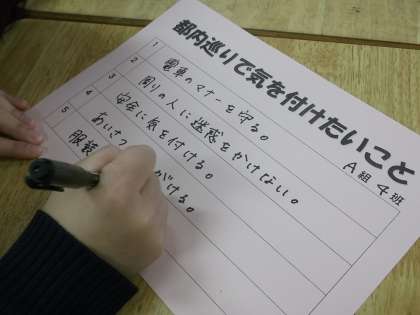 都内巡りで気を付けたいこと
A組4班
1 電車のマナーを守る。
2 周りの人に迷惑をかけない。
3 安全に気を付ける。
4 あいさつ がける。
5 服装